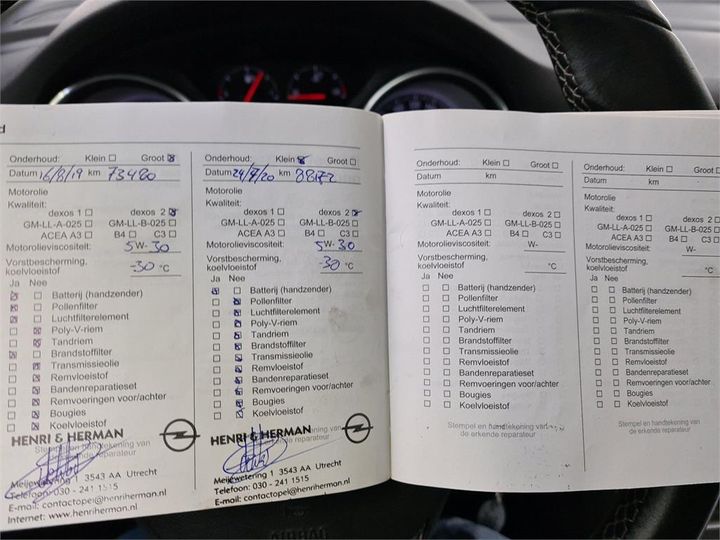 d
Onderhoud: Klein ☐ Groot ☒
Datum 16/8/19 km 73480
Motorolie
Kwaliteit:
dexos 1 ☐ dexos 2 ☒
GM-LL-A-025 ☐ GM-LL-B-025 ☐
ACEA A3 ☐ B4 ☐ C3 ☐
Motorolieviscositeit: 5W-30
Vorstbescherming,
koelvloeistof -30 °C
Ja Nee
☒ ☐ Batterij (handzender)
☒ ☐ Pollenfilter
☒ ☐ Luchtfilterelement
☐ ☒ Poly-V-riem
☐ ☒ Tandriem
☒ ☐ Brandstoffilter
☐ ☒ Transmissieolie
☐ ☒ Remvloeistof
☐ ☒ Bandenreparatieset
☐ ☒ Remvoeringen voor/achter
☐ ☒ Bougies
☐ ☒ Koelvloeistof
HENRI & HERMAN
Stempel en handtekening van
de erkende reparateur
Meijewetering 1 3543 AA Utrecht
Telefoon: 030 - 241 1515
E-mail: contactopel@henriherman.nl
Internet: www.henriherman.nl
Onderhoud: Klein ☒ Groot ☐
Datum 24/7/20 km
Motorolie
Kwaliteit:
dexos 1 ☐ dexos 2 ☒
GM-LL-A-025 ☐ GM-LL-B-025 ☐
ACEA A3 ☐ B4 ☐ C3 ☐
Motorolieviscositeit: 5W-30
Vorstbescherming,
koelvloeistof -30 °C
Ja Nee
☒ ☐ Batterij (handzender)
☐ ☒ Pollenfilter
☐ ☒ Luchtfilterelement
☐ ☒ Poly-V-riem
☐ ☒ Tandriem
☐ ☒ Brandstoffilter
☐ ☒ Transmissieolie
☐ ☒ Remvloeistof
☐ ☒ Bandenreparatieset
☐ ☒ Remvoeringen voor/achter
☐ ☒ Bougies
☐ ☒ Koelvloeistof
HENRI & HERMAN
Stempel en handtekening van
de erkende reparateur
Meijewetering 1 3543 AA Utrecht
Telefoon: 030 - 241 1515
E-mail: contactopel@henriherman.nl
Onderhoud: Klein ☐ Groot ☐
Datum km
Motorolie
Kwaliteit:
dexos 1 ☐ dexos 2 ☐
GM-LL-A-025 ☐ GM-LL-B-025 ☐
ACEA A3 ☐ B4 ☐ C3 ☐
Motorolieviscositeit: W-
Vorstbescherming,
koelvloeistof °C
Ja Nee
☐ ☐ Batterij (handzender)
☐ ☐ Pollenfilter
☐ ☐ Luchtfilterelement
☐ ☐ Poly-V-riem
☐ ☐ Tandriem
☐ ☐ Brandstoffilter
☐ ☐ Transmissieolie
☐ ☐ Remvloeistof
☐ ☐ Bandenreparatieset
☐ ☐ Remvoeringen voor/achter
☐ ☐ Bougies
☐ ☐ Koelvloeistof
Stempel en handtekening van
de erkende reparateur
Onderhoud: Klein ☐ Groot ☐
Datum km
Motorolie
Kwaliteit:
dexos 1 ☐ dexos 2 ☐
GM-LL-A-025 ☐ GM-LL-B-025 ☐
ACEA A3 ☐ B4 ☐ C3 ☐
Motorolieviscositeit: W-
Vorstbescherming,
koelvloeistof °C
Ja Nee
☐ ☐ Batterij (handzender)
☐ ☐ Pollenfilter
☐ ☐ Luchtfilterelement
☐ ☐ Poly-V-riem
☐ ☐ Tandriem
☐ ☐ Brandstoffilter
☐ ☐ Transmissieolie
☐ ☐ Remvloeistof
☐ ☐ Bandenreparatieset
☐ ☐ Remvoeringen voor/achter
☐ ☐ Bougies
☐ ☐ Koelvloeistof
Stempel en handtekening van
de erkende reparateur